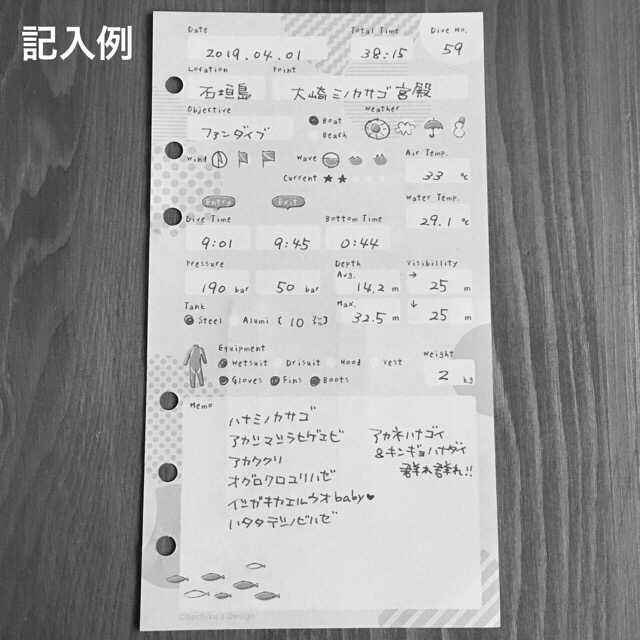 記入例
Date Total Time Dive No.
2019.04.01 38:15 59
Location Point
石垣島 大崎ミノカサゴ宮殿
Objective Weather
ファンダイブ Boat
Beach
Wind Wave Air Temp.
Current ★★ 33 ℃
Entry Exit Water Temp.
29.1 ℃
Dive Time Bottom Time
9:01 9:45 0:44
Pressure Depth Visibillity
Avg. →
190 bar 50 bar 14.2 m 25 m
Tank Max. ↓
Steel Alumi [ 10 リットル ] 32.5 m 25 m
Equipment Weight
Wetsuit Drisuit Hood Vest
Gloves Fins Boots 2 kg
Memo
ハナミノカサゴ
アカシマシラヒゲエビ アカネハナゴイ
アカククリ &キンギョハナダイ
オグロクロユリハゼ 群れ群れ!!
イシガキカエルウオbaby♥
ハタタテシノビハゼ
©hachiko's Design